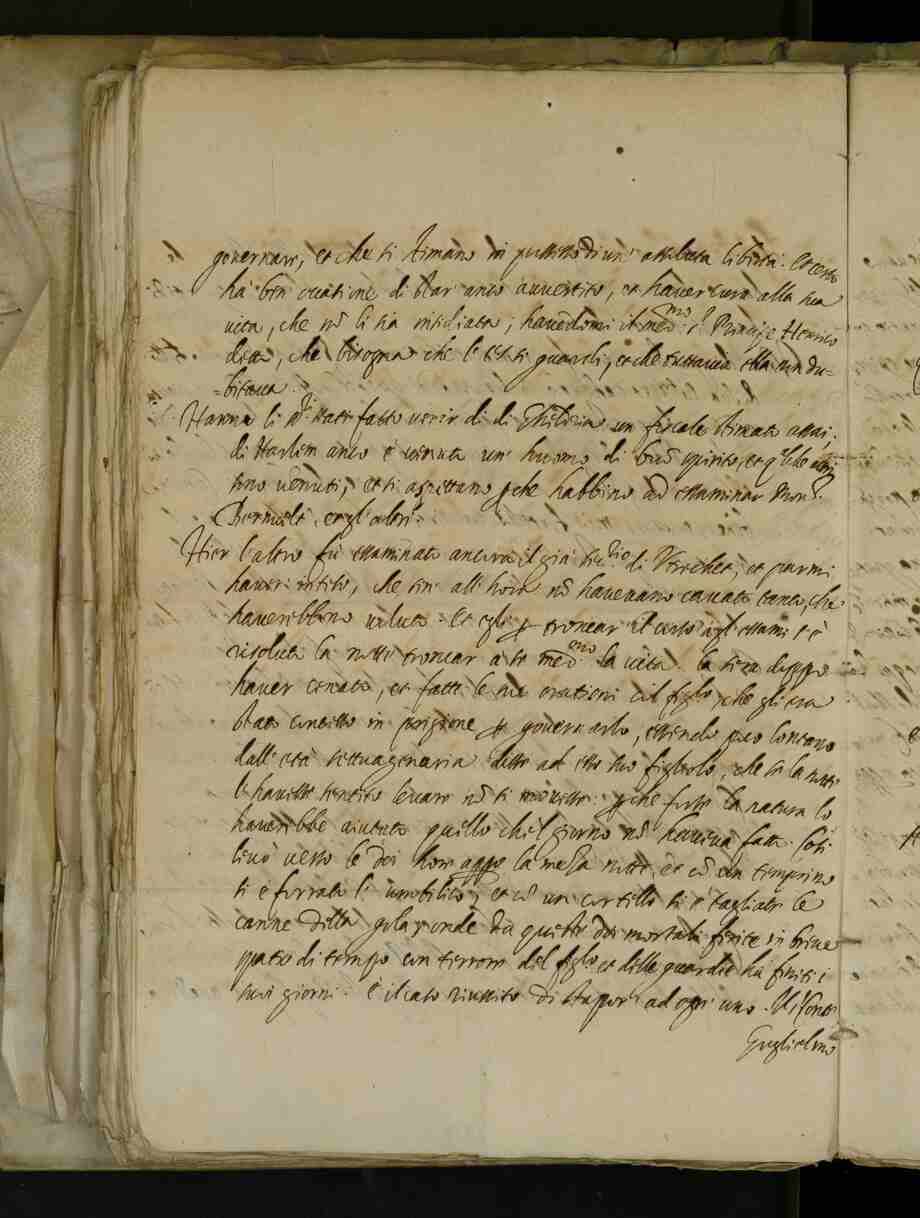 governare, et che si rimano in possesso di un' assoluta libertà. Et certo
ha ben occasione di star anco avvertito, et haver cura alla sua
vita, che nõ li sia insidiata; havendomi il medmo sr Principe Henrico
detto, che bisogna che S. Ecc. si guardi, et che tuttavia ella non du-
-bitava.
Hanno li sri stati fatto venir di di Gheldria un fiscale stimato assai;
di Harlem anco è venuto un' huomo di buõ spirito, et qualche altri
sono venuti, et si aspettano, ꝑche habbino ad essaminar Monsr
Bernvelt, et gl' altri.
Hier l'altro fu essaminato ancora il già secrio di Utrechet, et parmi
haver inteso, che sin' all' hora nõ havevano cavato tanto, che
haverebbono voluto. Et egli ꝑ troncar il corso agl' essami s' è
risoluto la notte troncar a se medmo la vita. La sera doppo
haver cenato, et fatte le sue orationi col figlo, che gli era
stato concesso in prigione ꝑ governarlo, essendo poco lontano
dall' età settuagenaria disse ad esso suo figliolo, che se la notte
l' havesse sentito levare nõ si movesse: ꝑche forse la natura lo
haverebbe aiutato quello che 'l giorno nõ haveva fatto. Cosi
levò verso le doi hore appo la meza notte, et cõ un temperino
si è forrato l' umbilico, et cõ un cortello si è tagliato le
canne della gola, onde da queste doi mortali ferite in breve
spatio di tempo con terrore del figlo et delle guardie ha finiti i
suoi giorni. È il caso riuscito di stupor ad ogn' uno. Il Conte
Guglielmo